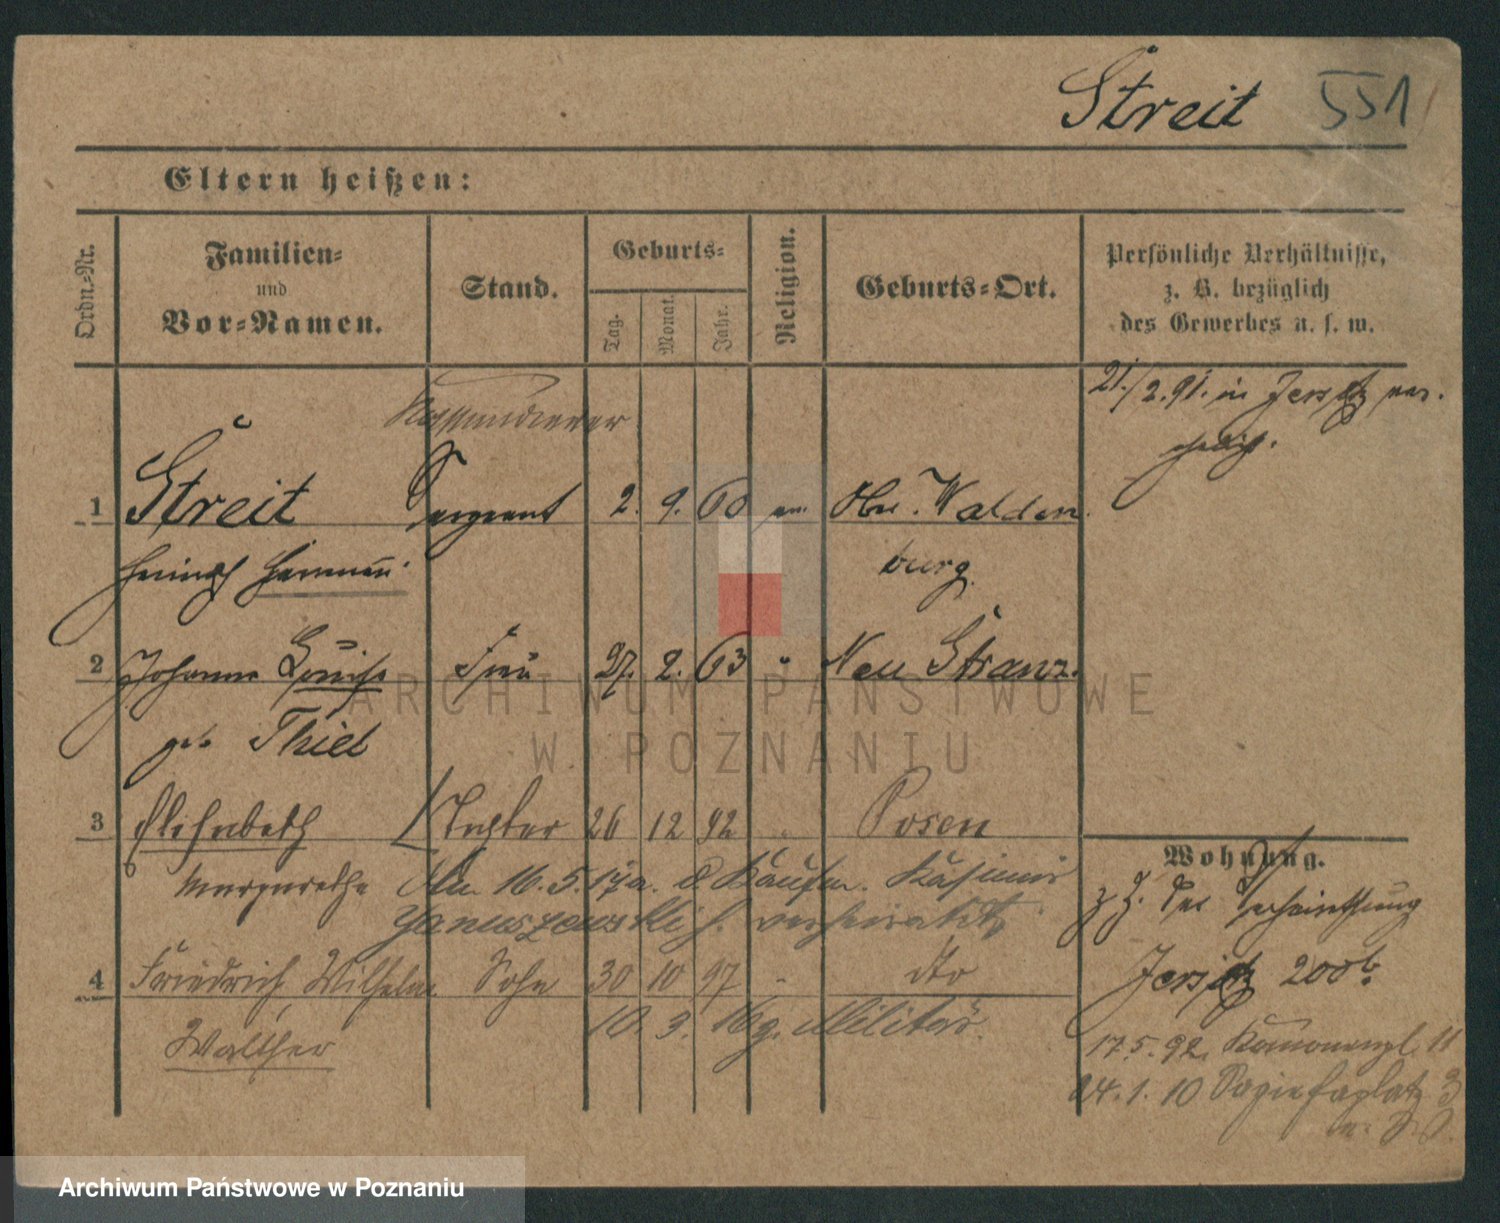 Streit 551
Eltern heißen:
Ordn.-Nr.
Familien-
und
Vor-Namen.
Stand.
Geburts-
Tag.
Monat.
Jahr.
Religion.
Geburts-Ort.
Persönliche Verhältnisse,
z. B. bezüglich
des Gewerbes u. s. w.
21./2.91. in Jersitz ver-
ehelicht.
1 Streit Sergeant 2. 9. 60 ev. Ober. Walden
Heinrich Hermann burg.
2 Johanna Louise Frau 27. 2. 63 " Neu Stranz.
geb Thiel
3 Elisabeth Tochter 26 12 92 " Posen
Margarethe Am 16.5.17 a. d. Kaufm. Kasimir
Januszewski h. verheiratet
4 Friedrich Wilhelm Sohn 30 10 97 - dto
Walther 10. 3. 16 z. Militär.
Wohnung.
z. Z. der Verheirathung
Jersitz 200b.
17.5.92. Kanonenpl. 11
24.1.10 Sapiehaplatz 3
ARCHIWUM PAŃSTWOWE
W POZNANIU
Archiwum Państwowe w Poznaniu